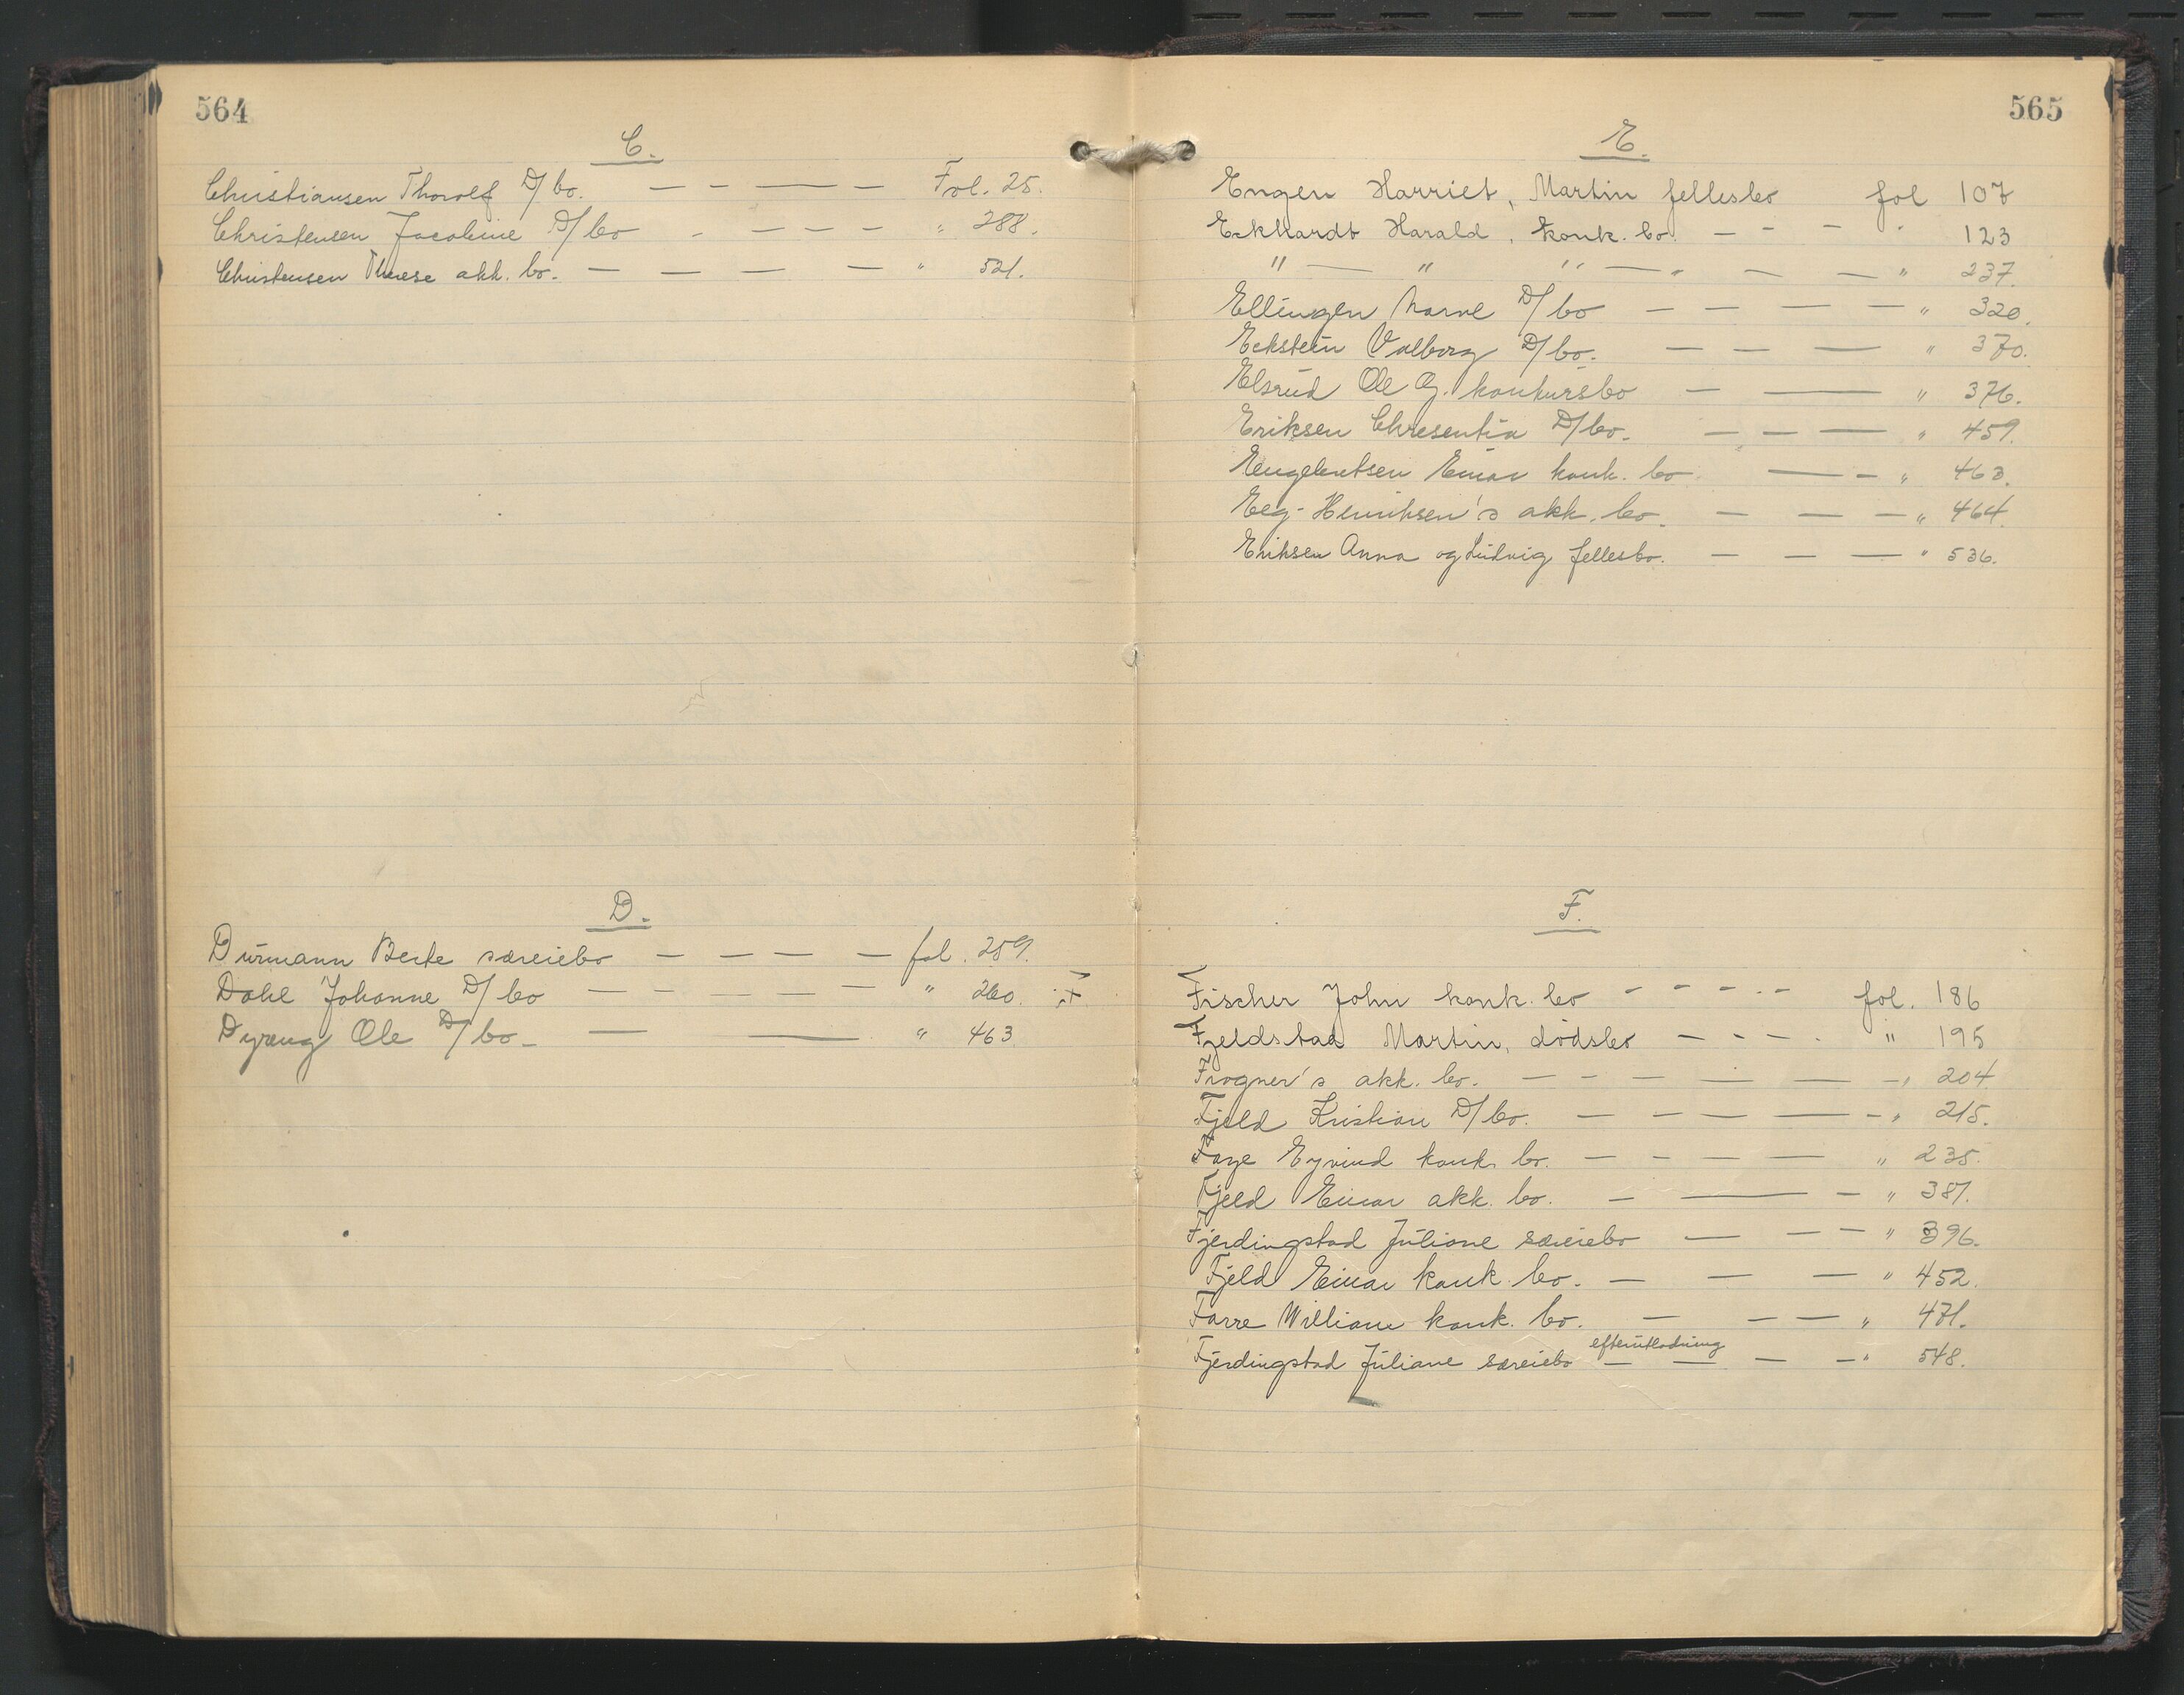 564
C.
Christiansen Thorolf D/bo. — - — — Fol. 25.
Christensen Jacobine D/bo - — — — " 288.
Christensen Therese akk. bo. — — — — " 521.
D.
Dürmann Berte særeiebo — — — — fol. 259.
Dahl Johanne D/bo — — — — — " 260.
Dyreng Ole D/bo — — " 463.
565
E.
Engen Harriet, Martin fellesbo fol 107
Eckhardt Harald, konk. bo. — - - " 123
" — " " — " — — " 237.
Ellingen Marne D/bo — — — — " 320.
Eckstein Valborg D/bo. — — — " 370.
Elsrud Ole G. konkursbo — — " 376.
Eriksen Chresentia D/bo. — — — " 459.
Engebretsen Einar konk. bo — - " 463.
Eeg-Henriksen's akk. bo. — — — " 464.
Eriksen Anna og Ludvig fellesbo. — — — " 536.
F.
Fischer John konk. bo - - - - - fol. 186
Fjeldstad Martin, dødsbo — - - . " 195
Frogner's akk. bo. — - — — — - " 204
Fjeld Kristian D/bo. — — — — - " 215.
Faye Eyvind konk. bo. — - — — " 235.
Fjeld Einar akk. bo. — — — " 387.
Fjerdingstad Juliane særeiebo — — — " 396.
Fjeld Einar konk. bo. — — — " 452.
Farre William konk. bo. — — — " 471.
efterutlodning
Fjerdingstad Juliane særeiebo — — — — " 548.